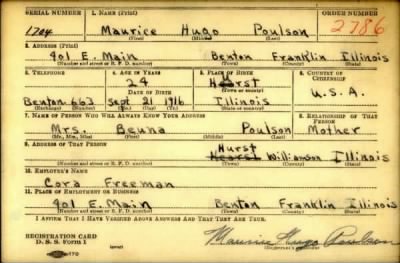 SERIAL NUMBER 1. NAME (Print) ORDER NUMBER
1704 Maurice Hugo Poulson 2786
(First) (Middle) (Last)
2. ADDRESS (Print)
901 E. Main Benton Franklin Illinois
(Number and street or R. F. D. number) (Town) (County) (State)
3. TELEPHONE 4. AGE IN YEARS 5. PLACE OF BIRTH 6. COUNTRY OF CITIZENSHIP
24 Hurst
DATE OF BIRTH (Town or county)
Benton 663 Sept 21 1916 Illinois U.S.A.
(Exchange) (Number) (Mo.) (Day) (Yr.) (State or country)
7. NAME OF PERSON WHO WILL ALWAYS KNOW YOUR ADDRESS 8. RELATIONSHIP OF THAT PERSON
Mrs. Poulson Mother
(Mr., Mrs., Miss) (First) (Middle) (Last)
9. ADDRESS OF THAT PERSON
Hurst Williamson Illinois
(Number and street or R. F. D. number) (Town) (County) (State)
10. EMPLOYER'S NAME
Cora Freeman
11. PLACE OF EMPLOYMENT OR BUSINESS
901 E. Main Benton Franklin Illinois
(Number and street or R. F. D. number) (Town) (County) (State)
I AFFIRM THAT I HAVE VERIFIED ABOVE ANSWERS AND THAT THEY ARE TRUE.
REGISTRATION CARD
D. S. S. Form 1 (over) Maurice Hugo Poulson